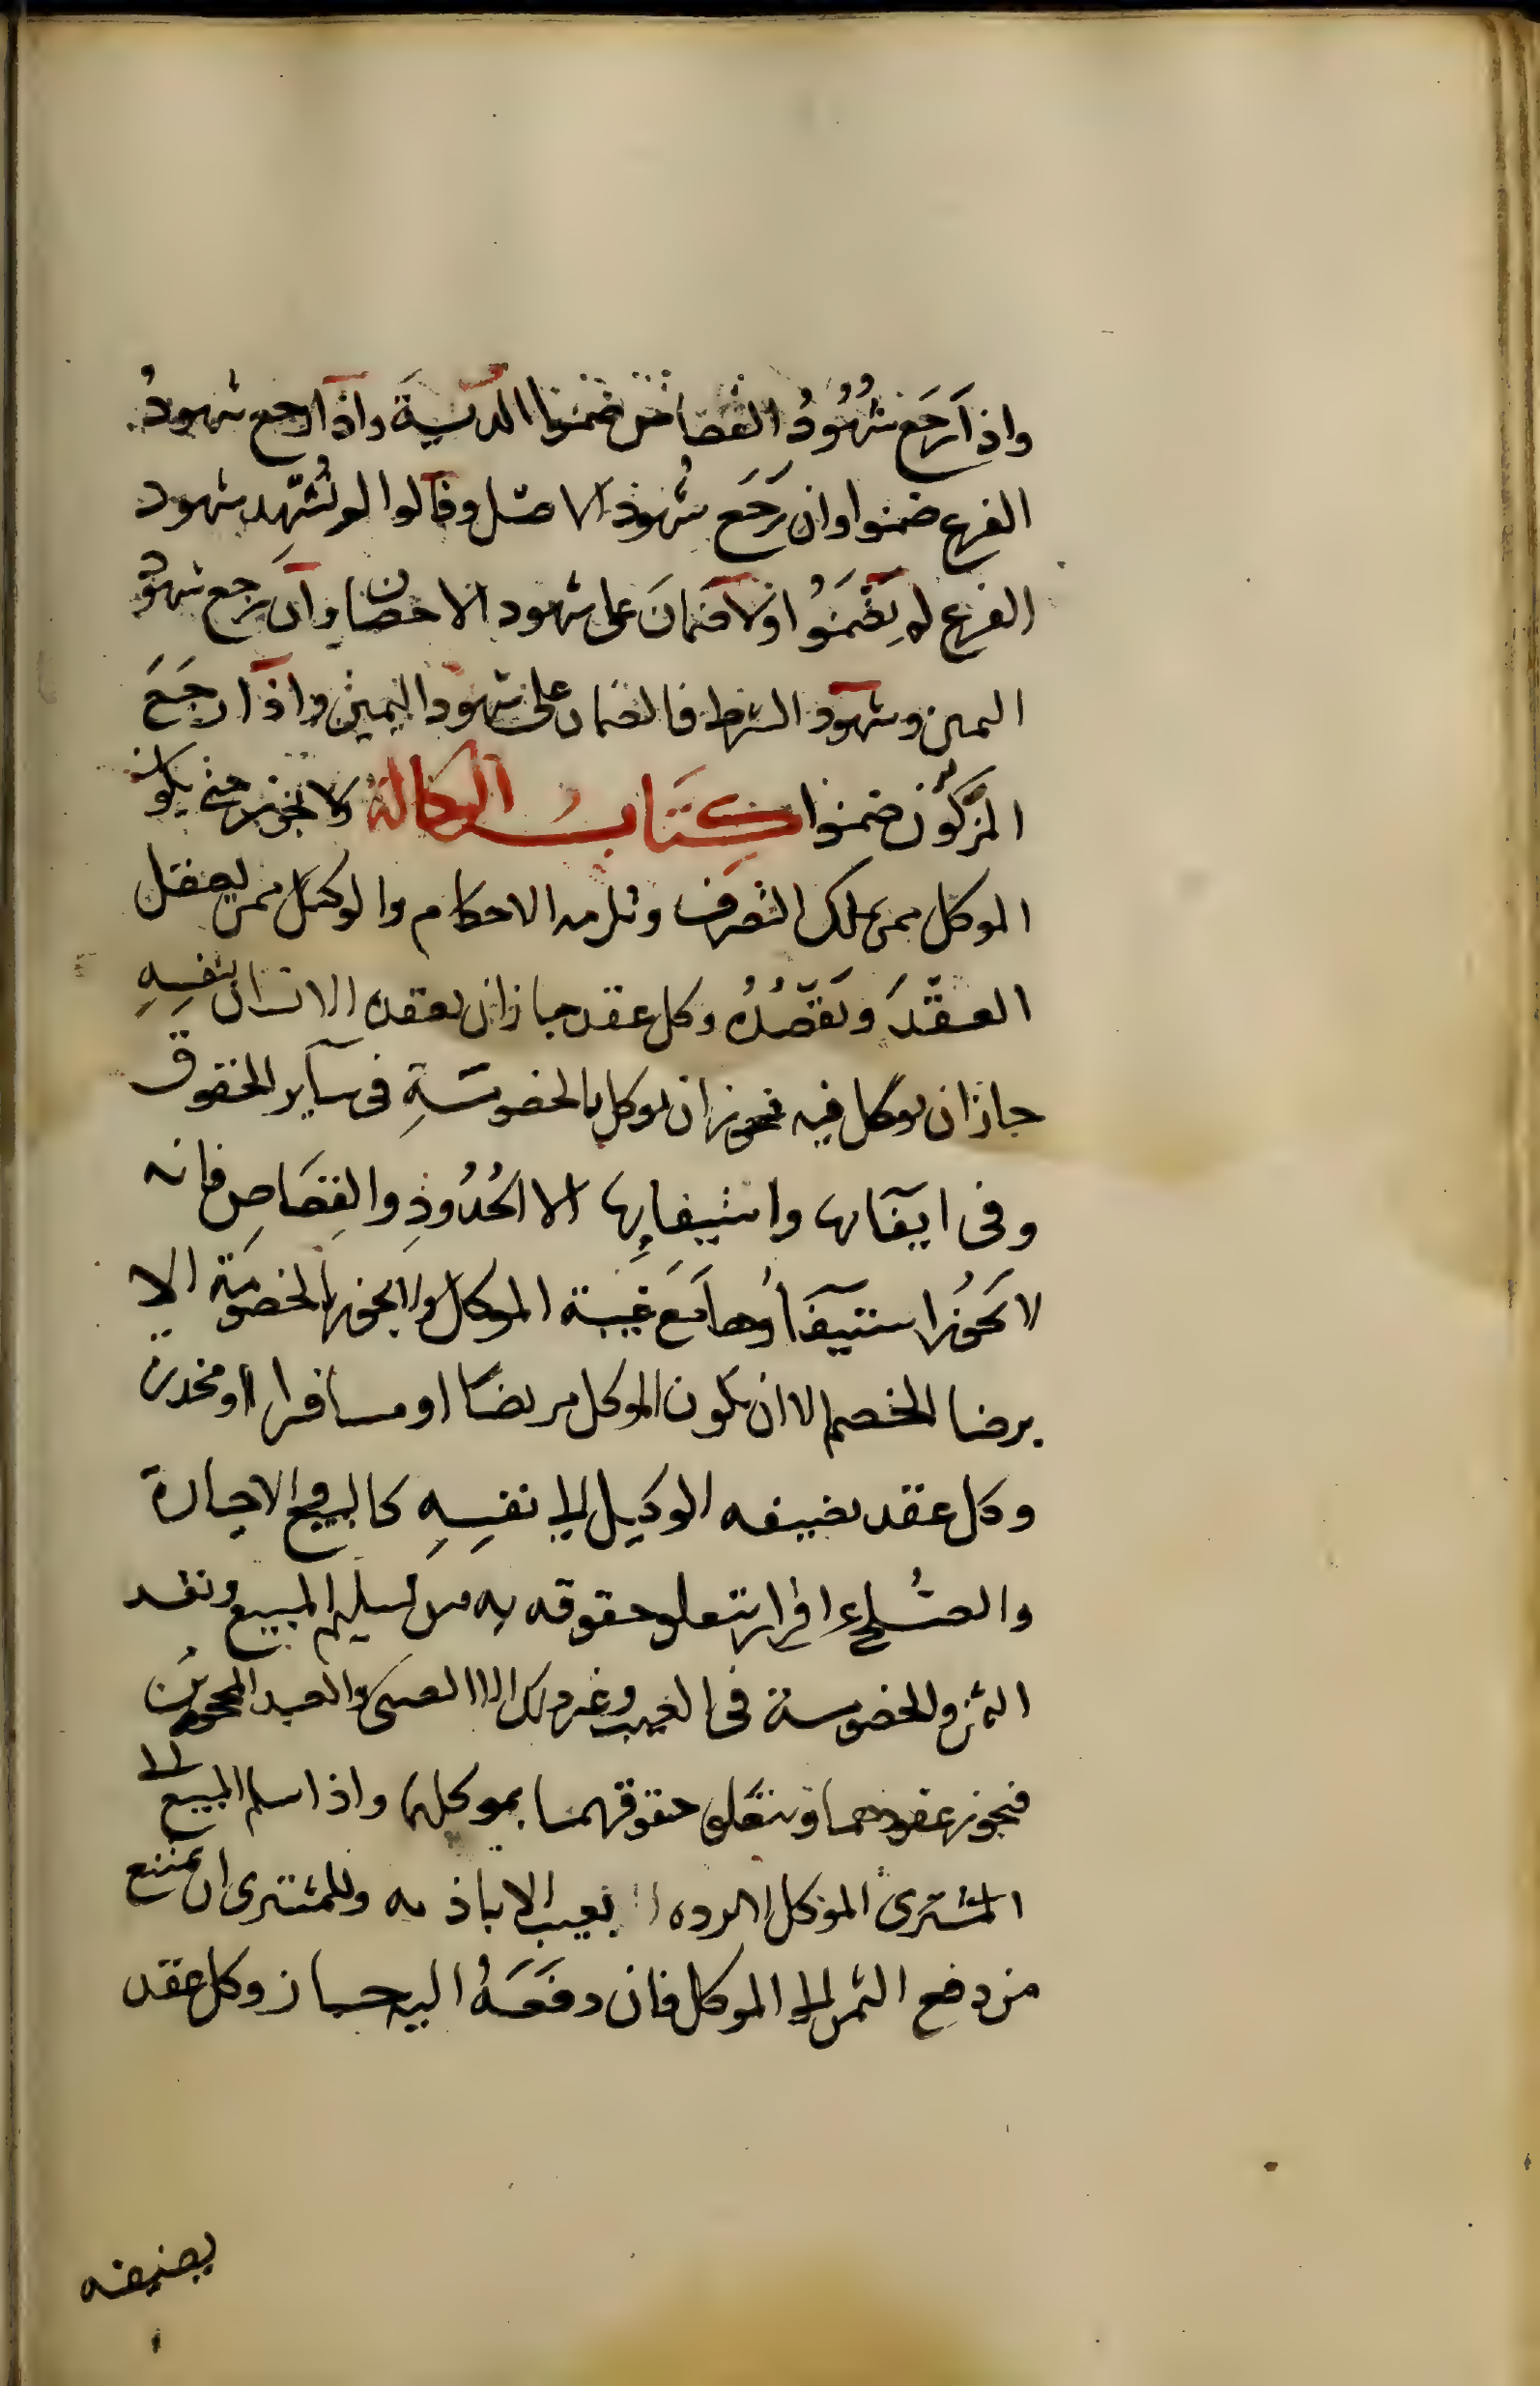 واذا رَجَع شُهُوُدُ القصاص ضمنوا الديةَ واذا رجع شهودُ
الفرع ضمنوا وان رَجَع شُهودُ الاصل وقالوا لم نُشهِد شهود
الفرع لم يَضمَنُوا ولا ضمانَ على شهود الاحصان وان رجع شهودُ
اليمين وشهود الشرط فالضمان على شهود اليمين واذا رجَعَ
المزكّون ضمنوا كِتَابُ الوكالة ولا تجوز حتى يكون
الموكل ممن يملك التصرف وتلزمه الاحكام والوكيل ممن يعقل
العقدَ ويقصُدُه وكل عقد جاز ان يعقده الانسان لنفسِهِ
جاز ان يوكل فيه فيجوز ان يوكل بالخصومةِ في سآير الحقوق
وفى ايفآيها واستيفايِها الا الحُدُودِ والقِصَاصِ فانه
لا يَجوُز استيفآؤها مَع غَيبة الموكل ولا يجوز بالخصومة الا
برضا الخصم الا ان يكون الموكل مريضا او مسافرا او مخدرة
وكل عقد يضيفه الوكيل الى نفسِهِ كالبيع والاجارة
والصُلح عن اقرار يتعلق حقوقه به من تسليم المبيع ونقد
الثمن والخصومة في العيب وغير ذلك الا الصبى والعبد المحجورين
فيجوز عقودهما ويتعلق حقوقهما بموكلهما واذا سلم المبيع الى
المشترى الموكل لا يرده بعيب الا باذنه وللمشترى ان يمتنع
من دفع الثمن الى الموكل فان دفَعَهُ اليه جاز وكل عقد
يضيفه